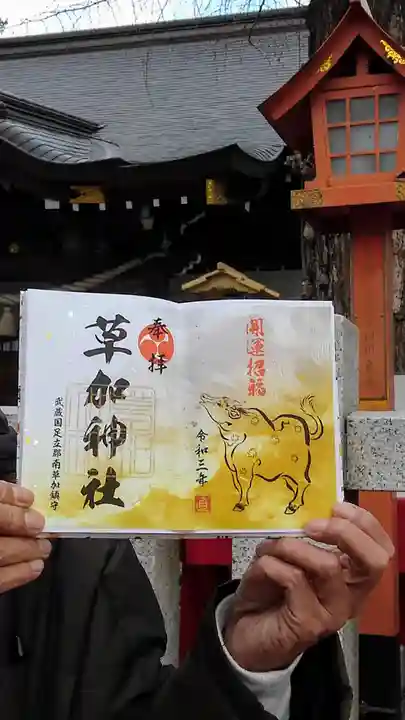 開運招福
令和三年
奉拝
草加神社
武蔵国足立郡南草加鎮守